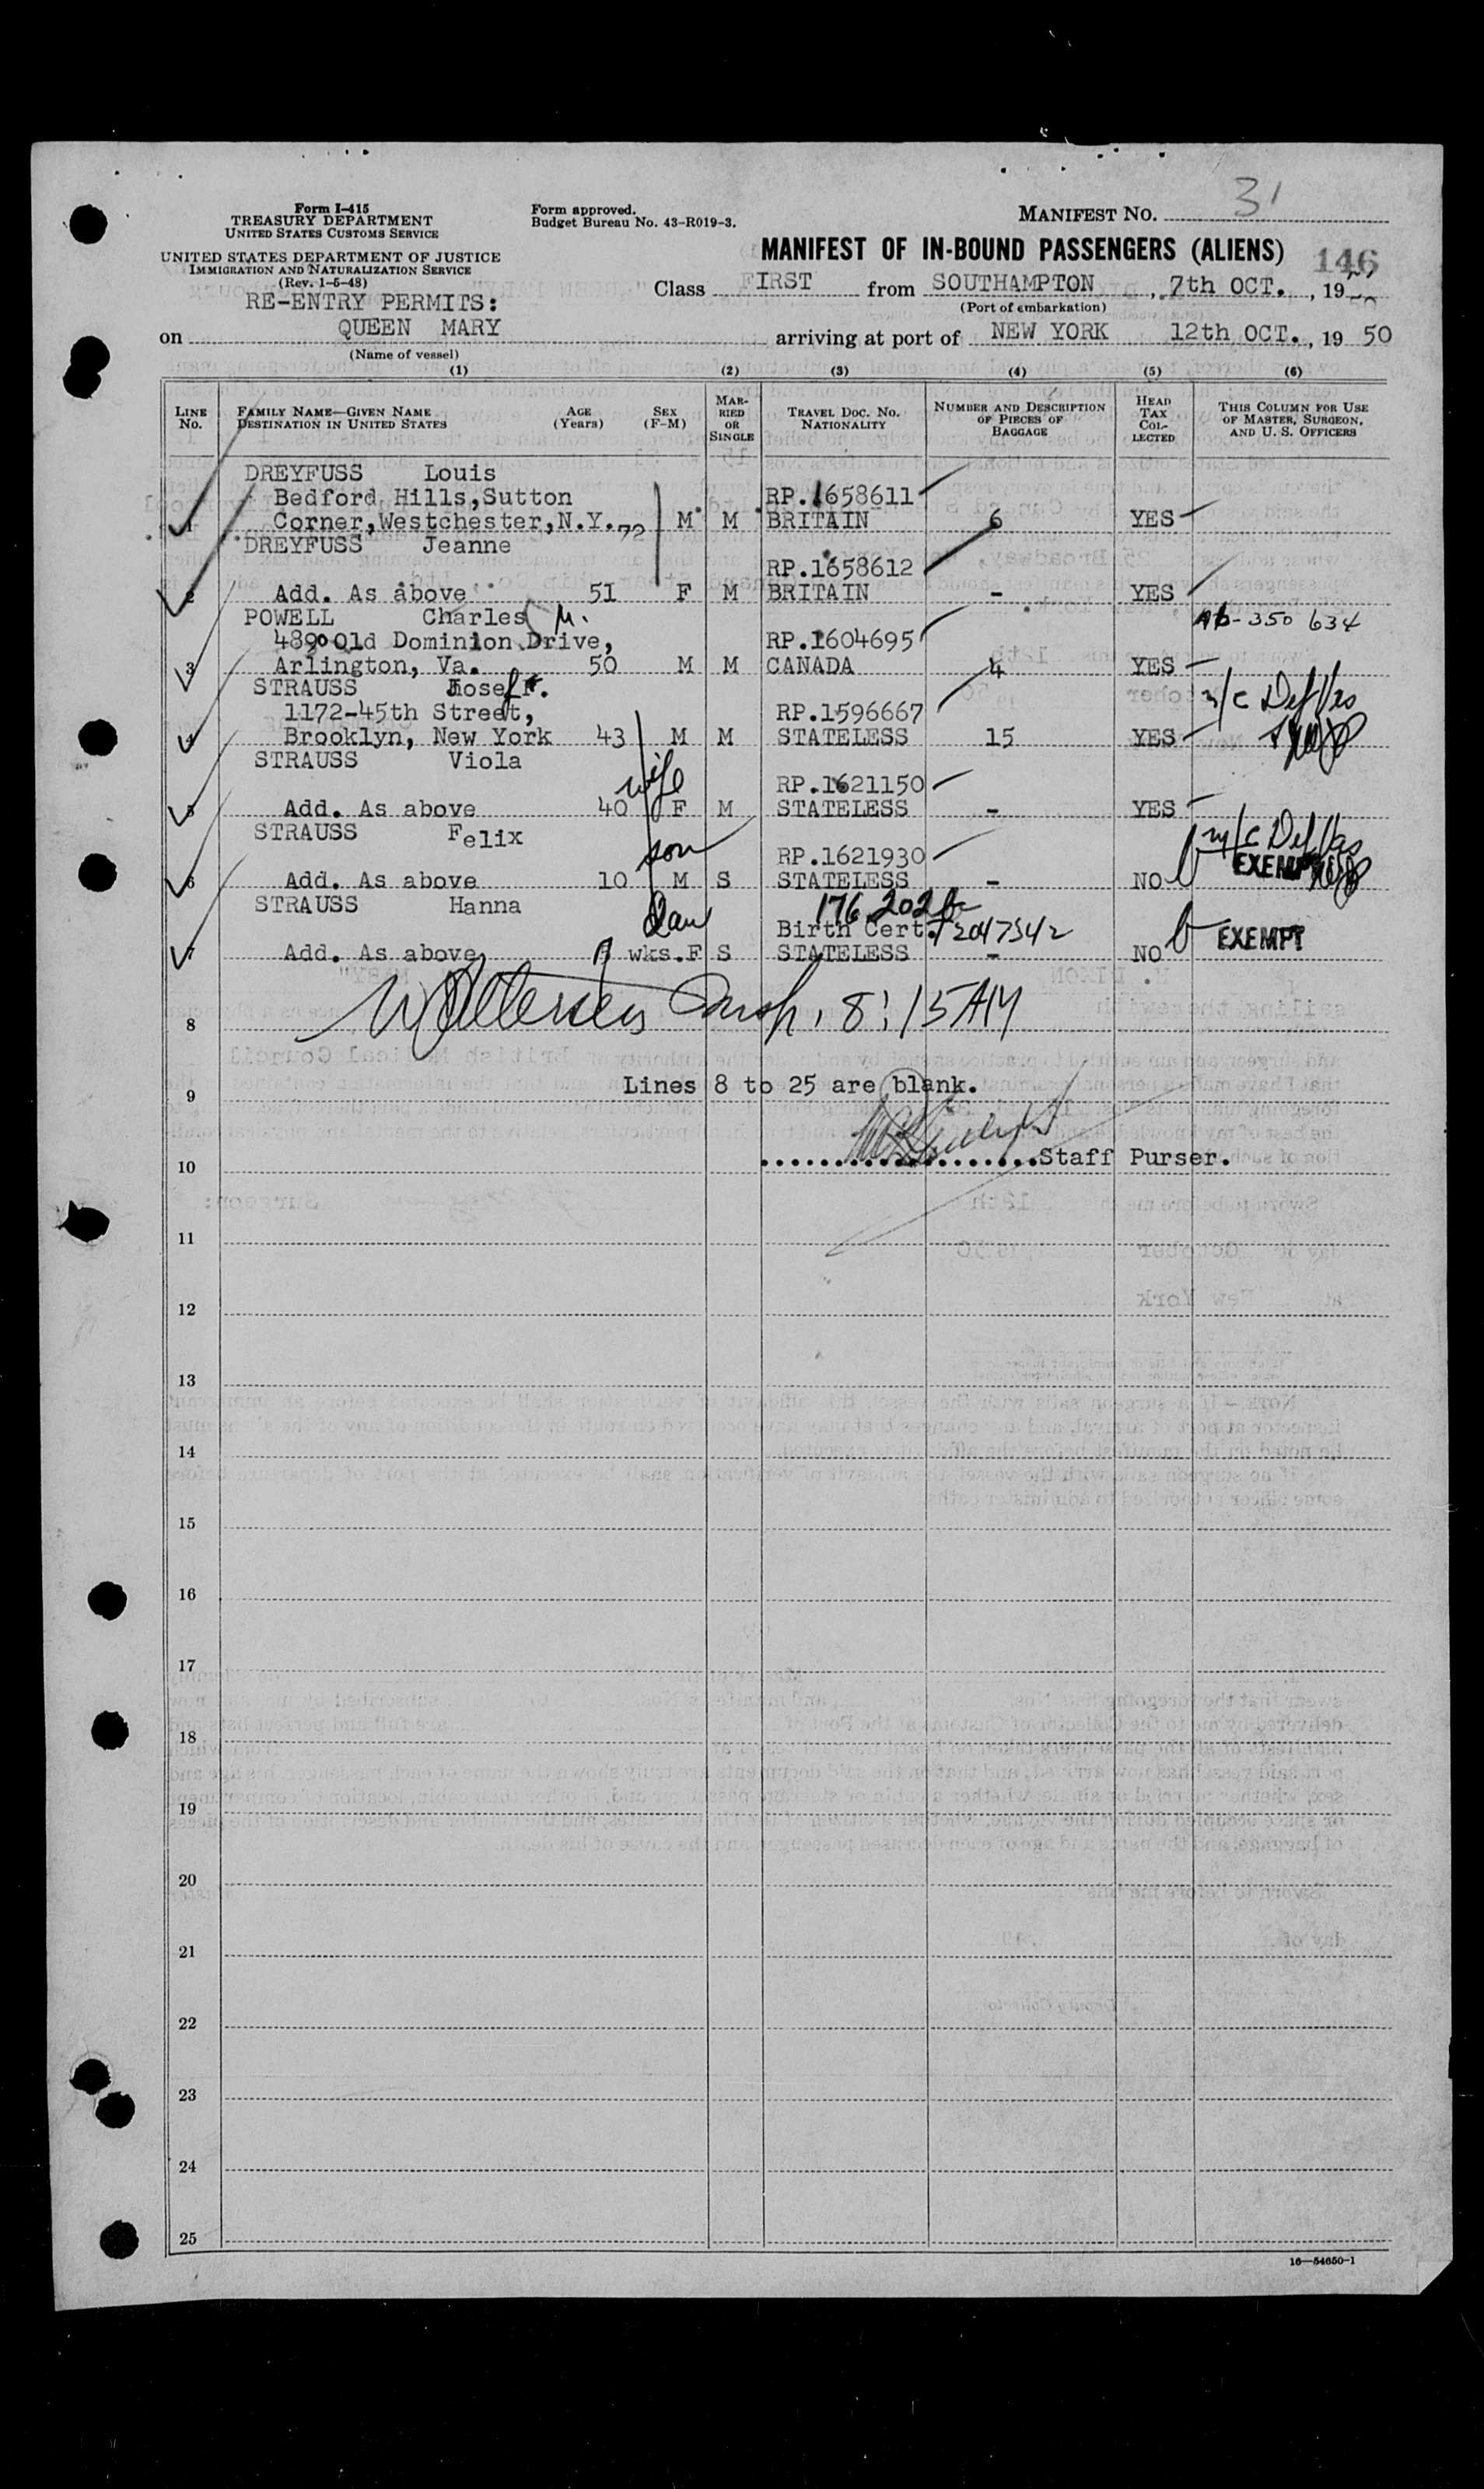 Form I-415
TREASURY DEPARTMENT
UNITED STATES CUSTOMS SERVICE
UNITED STATES DEPARTMENT OF JUSTICE
IMMIGRATION AND NATURALIZATION SERVICE
(Rev. 1-5-48)
Form approved.
Budget Bureau No. 43-R019-3.
MANIFEST NO. 31
MANIFEST OF IN-BOUND PASSENGERS (ALIENS) 146
RE-ENTRY PERMITS:
Class FIRST from SOUTHAMPTON, 7th OCT., 19
(Port of embarkation)
on QUEEN MARY arriving at port of NEW YORK 12th OCT., 19 50
(Name of vessel)
(1) (2) (3) (4) (5) (6)
LINE No. FAMILY NAME—GIVEN NAME DESTINATION IN UNITED STATES AGE (Years) SEX (F-M) MARRIED OR SINGLE TRAVEL DOC. NO. NATIONALITY NUMBER AND DESCRIPTION OF PIECES OF BAGGAGE HEAD TAX COLLECTED THIS COLUMN FOR USE OF MASTER, SURGEON, AND U. S. OFFICERS
DREYFUSS Louis
Bedford Hills,Sutton RP.1658611
1 Corner,Westchester,N.Y. 72 M M BRITAIN 6 YES
DREYFUSS Jeanne
RP.1658612
2 Add. As above 51 F M BRITAIN - YES
POWELL Charles M. 350 634
4890 Old Dominion Drive, RP.1604695
3 Arlington, Va. 50 M M CANADA 4 YES
STRAUSS Josef F.
1172-45th Street, RP.1596667
4 Brooklyn, New York 43 M M STATELESS 15 YES
STRAUSS Viola
wife RP.1621150
5 Add. As above 40 F M STATELESS - YES
STRAUSS Felix
son RP.1621930
6 Add. As above 10 M S STATELESS - NO EXEMPT
STRAUSS Hanna 176 202
Dau Birth Cert. 2047542
7 Add. As above wks. F S STATELESS - NO EXEMPT
Insp. 8:15 AM
8
Lines 8 to 25 are blank.
9
10 Staff Purser.
11
12
13
14
15
16
17
18
19
20
21
22
23
24
25
16—54650-1